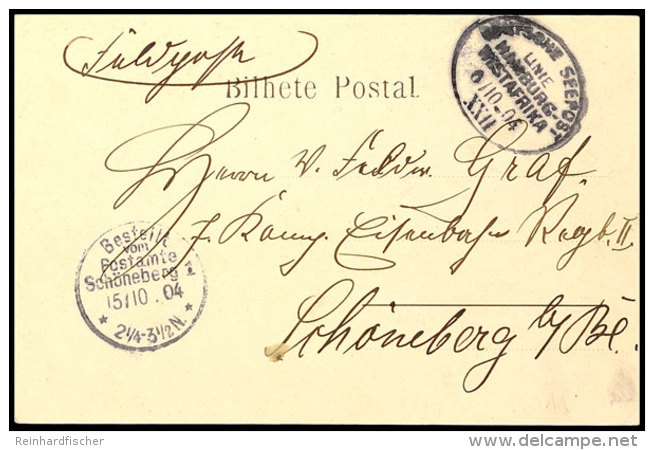 Feldpost
Bilhete Postal
DEUTSCHE SEEPOST
LINIE
HAMBURG-
WESTAFRIKA
/10.04
XXVII
Herrn v. Feldw. Graf.
7. Komp. Eisenbahn Regt. II.
Bestellt
vom
Postamte
Schöneberg 1
15/10.04
* 2¼-3½N. *
Schöneberg b/ Bl.
Reinhardfischer
delcampe.net